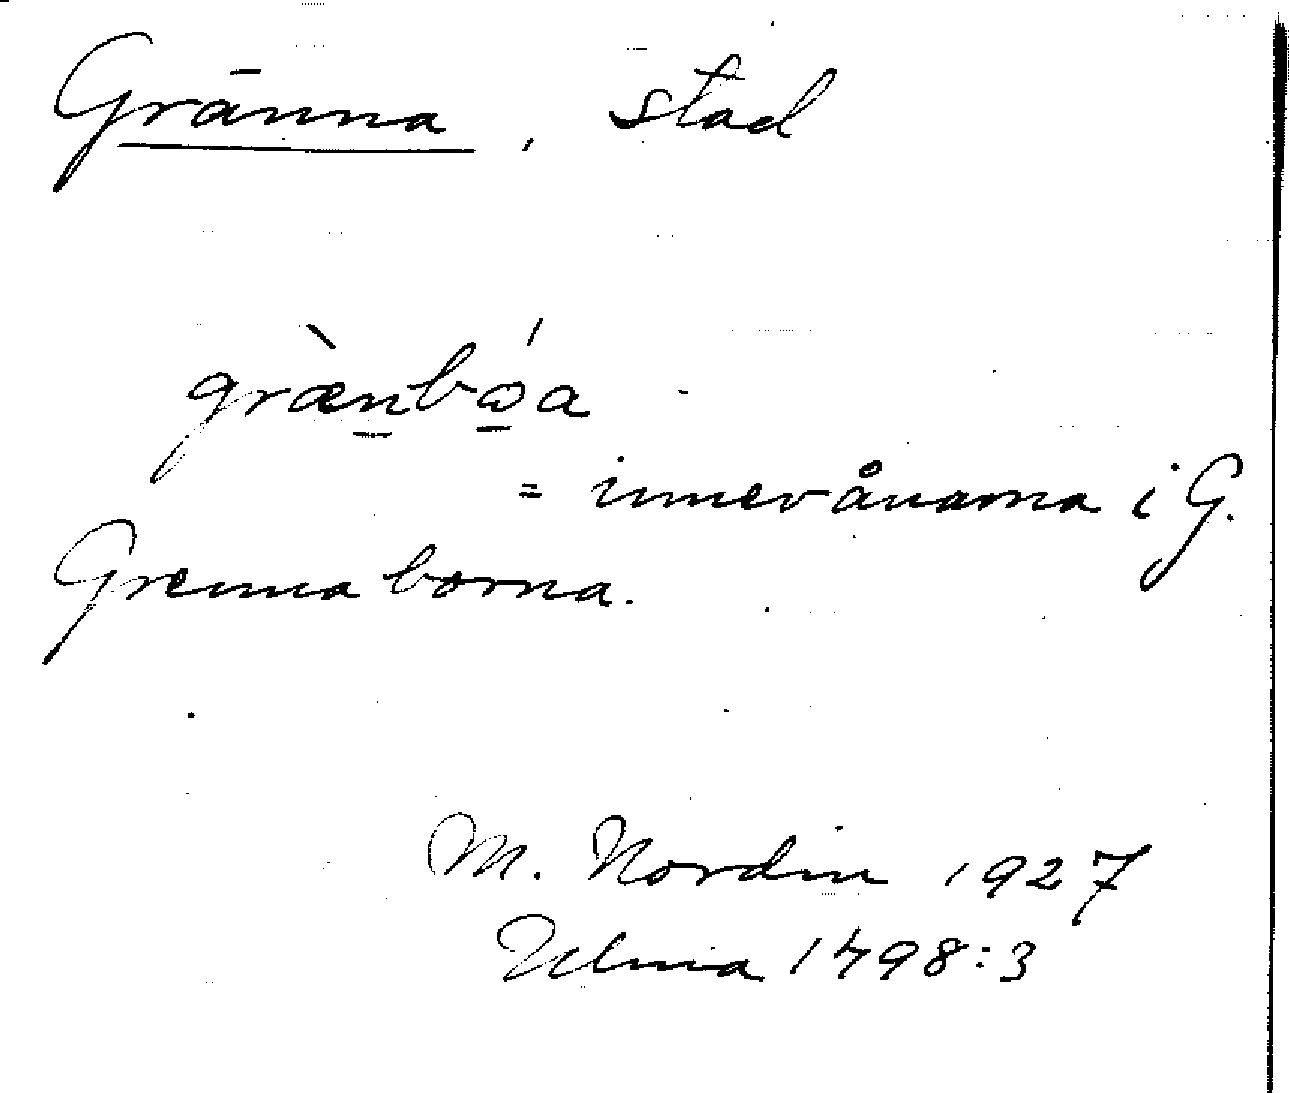 Gränna, stad
græ̀n̲bώ̲a
= innevånarna i G.
Grennaborna.
M. Nordin 1927
Ulma 1498:3